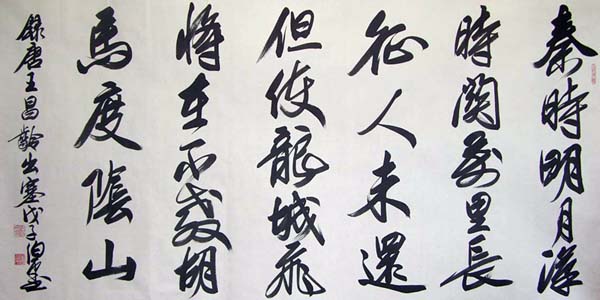 秦時明月漢
時關萬里長
征人未還
但使龍城飛
將在不教胡
馬度陰山
錄唐王昌齡出塞戊子